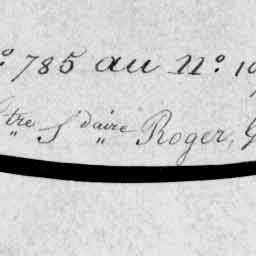 º 785 au N.º 19
tre S.daire Roger, G